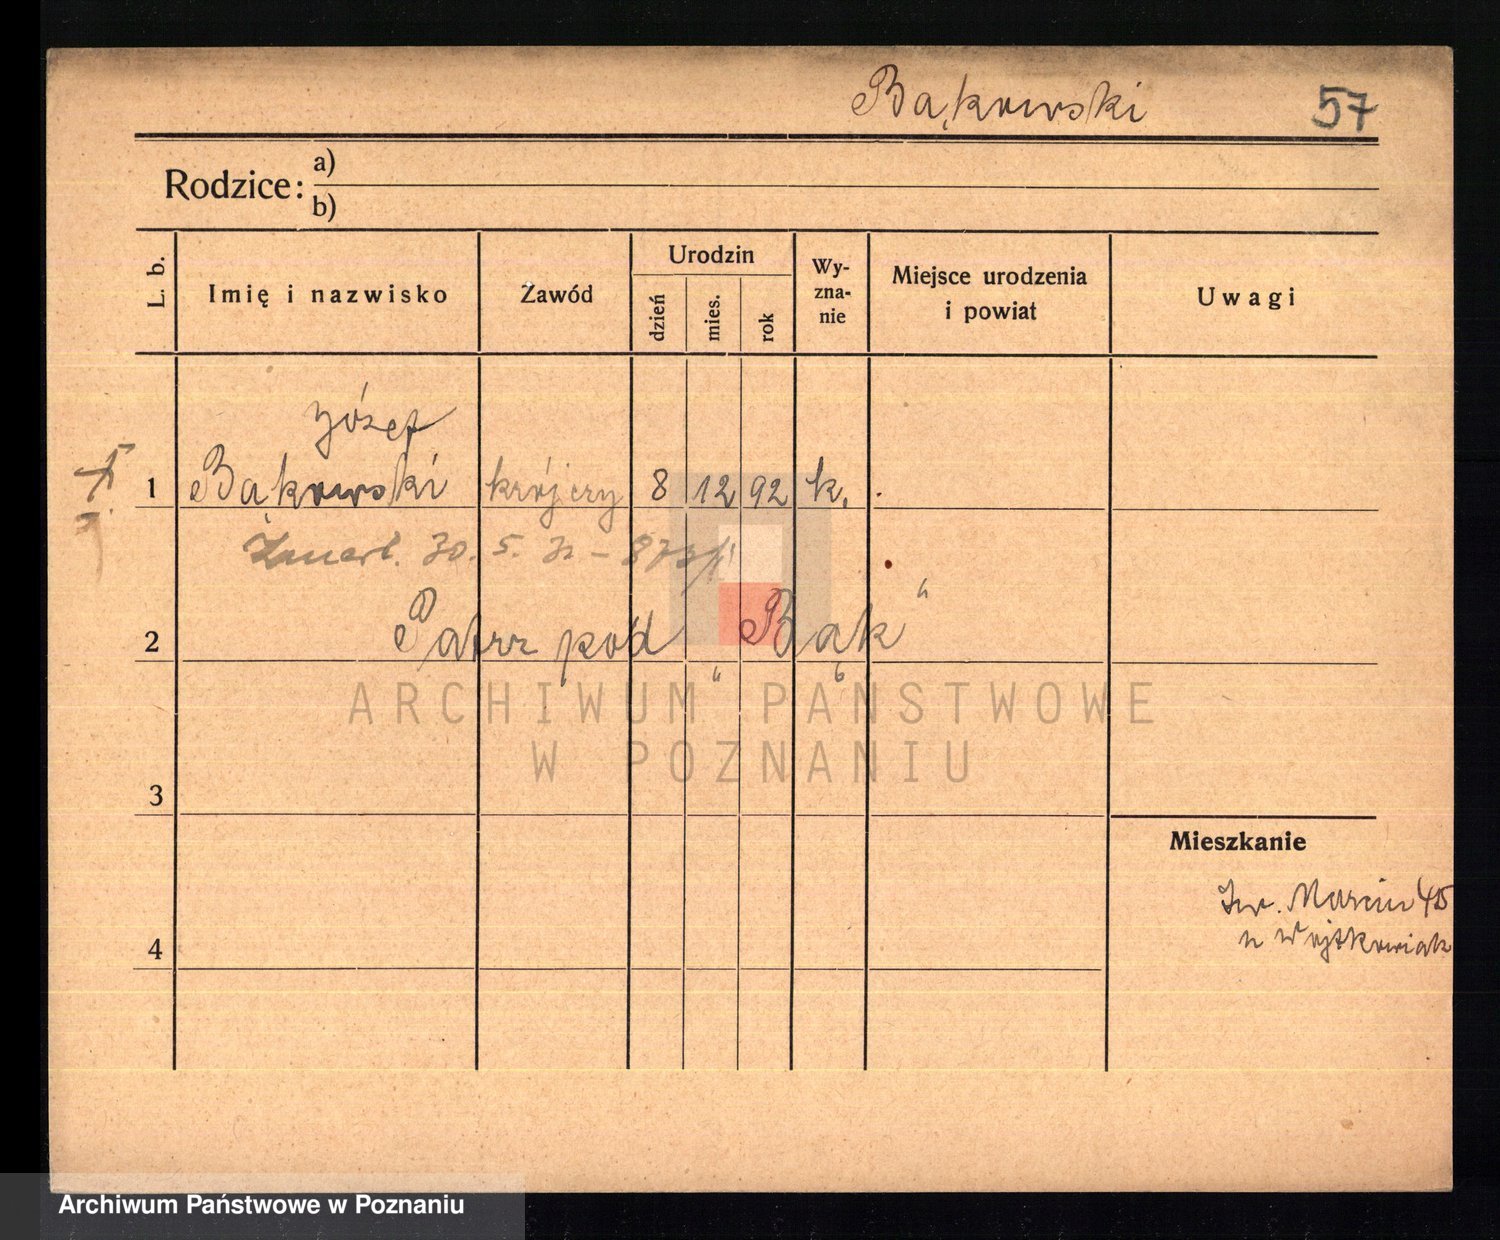 Bąkowski 57
Rodzice: a)
b)
L. b. Imię i nazwisko Zawód Urodzin dzień mies. rok Wy-zna-nie Miejsce urodzenia i powiat Uwagi
Józef
1 Bąkowski 8 12 92 k.
Zmarł. 30. 5.
2 Patrz pod „Bąk“
ARCHIWUM PAŃSTWOWE
W POZNANIU
3
Mieszkanie
Św. Marcin 45
4 u Wojtkowiak
Archiwum Państwowe w Poznaniu